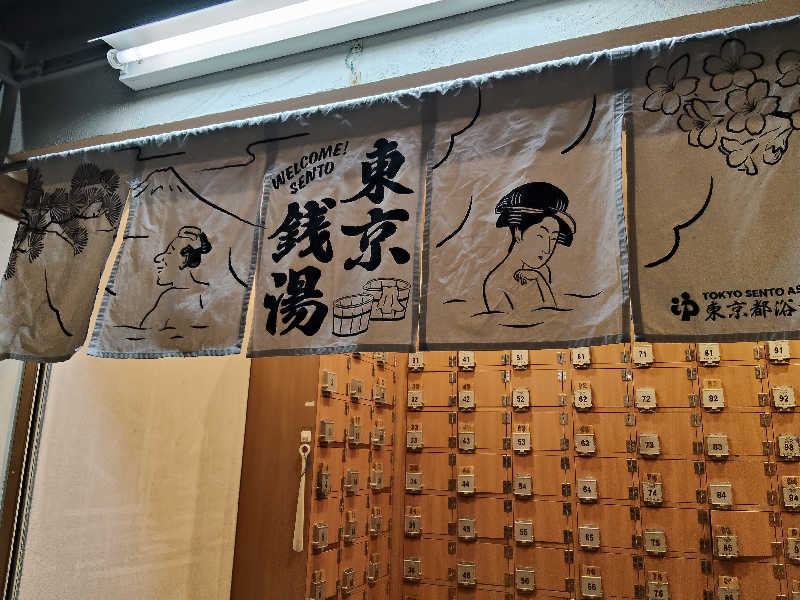 WELCOME!
SENTO
東京
銭湯
TOKYO SENTO AS
東京都浴
81 41 51 61 71 81 91
32 42 52 62 72 82 92
33 43 53 63 73 83 93
34 44 54 64 74 84 94
45 55 65 75 85
36 46 56 66 76